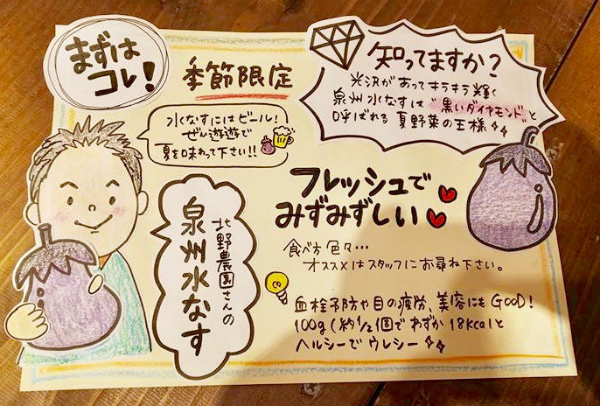 まずは
コレ!
季節限定
水なすにはビール!
ぜん遊遊で
夏を味わって下さい!!
知ってますか?
光沢があってキラキラ輝く
泉州水なすは"黒いダイヤモンド"と
呼ばれる夏野菜の王様
北野農園さんの
泉州水なす
フレッシュで
みずみずしい
食べ方色々…
オススメはスタッフにお尋ね下さい。
血栓予防や目の疲労、美容にもGOOD!
100g(約1/2個でわずか18kcalと
ヘルシーでウレシー